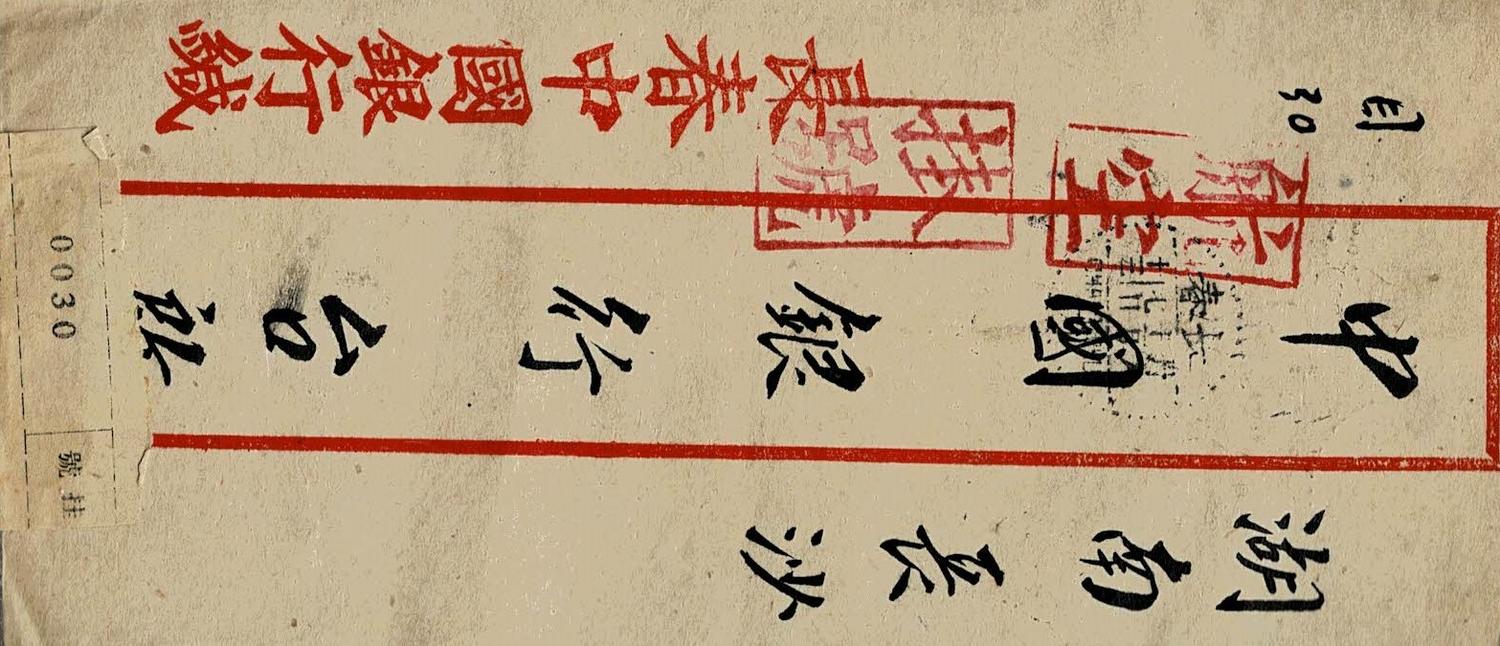 湖南長沙
中國銀行台
長春中國銀行緘
航空
挂號
30
挂號
0030